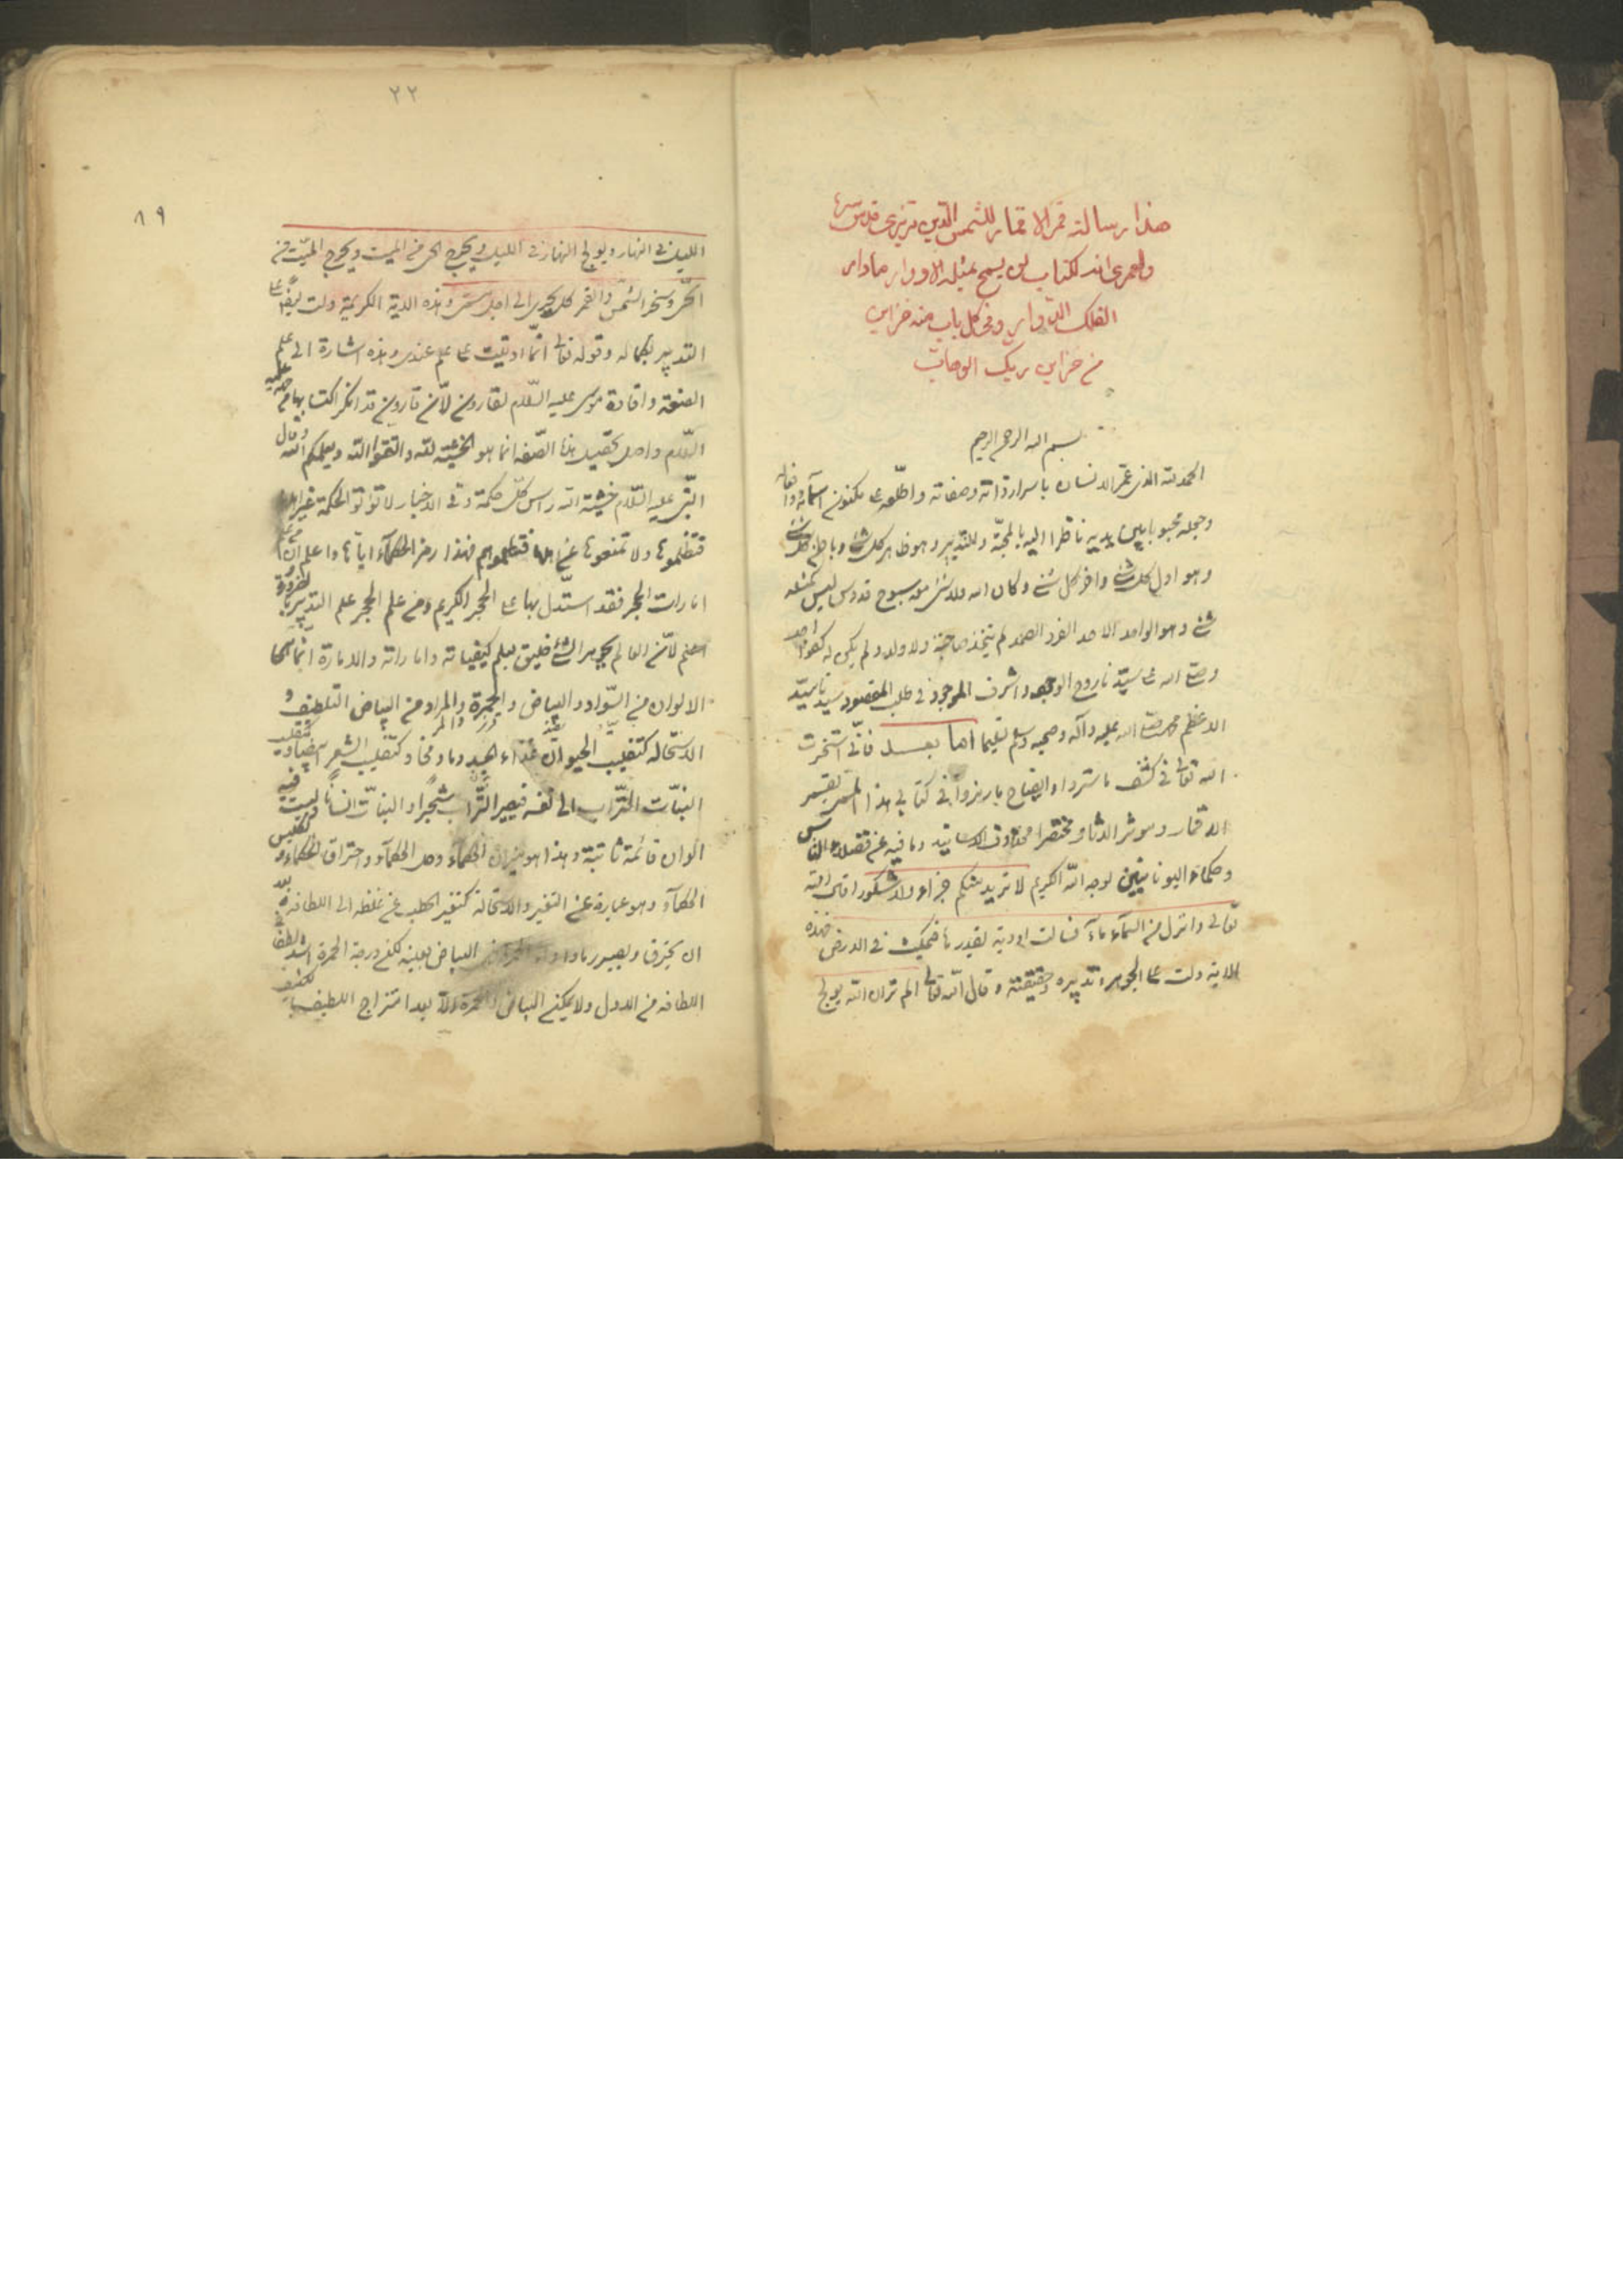 هذا رسالة قمر الاقمار للشمس الدين تبريزى قدس سره
ولعمرى انه لكتاب لن يسمح بمثله الادوار مادار
الفلك الدوار وفى كل باب منه خزاين
من خزاين ربك الوهاب
بسم الله الرحمن الرحيم
الحمد لله الذى عمّر الانسان باسرار ذاته وصفاته واطلعه على مكنون اسمائه وافعاله
وجعله محبوبا بين يديه ناظرا اليه بالمحبّة وللتدبير وهو ظاهر كل شئ وباطن كل شئ
وهو اول كل شئ واخر كل شئ وكان الله ولا شئ معه سبوح قدوس ليس كمثله
شئ وهو الواحد الاحد الفرد الصمد لم يتخذ صاحبة ولا ولد ولم يكن له كفوا احد
وصلى الله على سيّدنا روح الوجود واشرف الموجود فى طلب المقصود سيدنا سيّد
الاعظم محمد صلى الله عليه وآله وصحبه وسلم تسليما اما بعد فانّى استخرت
الله تعالى فى كشف ما ستروا وايضاح ما رمزوا فى كتابى هذا المسمى بقمر
الاقمار ومختصرا محذوف الاسانيد وما فيه عن فضلاء الناس
وحكماء اليونانيين لوجه الله الكريم لا نريد منكم جزاء ولا شكورا قال الله
تعالى وانزل من السماء ماء فسالت اودية بقدرها فى الارض فهذه
الاية دلت على الجوهر وتدبيره وحقيقته وقال الله تعالى الم تر ان الله يولج
٢٢
٨٩
الليل فى النهار ويولج النهار فى الليل ويخرج الحى من الميت ويخرج الميّت من
الحىّ وسخر الشمس والقمر كل يجرى الى اجل مسمى وهذه الاية الكريمة دلت ايضًا على
التدبير بكماله وقوله تعالى انّما اوتيت على علم عندى وهذه اشارة الى علم
الصنعة وافادة موسى عليه السّلام لقارون لانّ قارون قد انكر اكتسابها من عليه
السّلام واصل تحصيل هذا الصنعة انما هو الخشية لله واتقوا الله ويعلمكم الله وقال
النّبى عليه السّلام خشية الله راس كلّ حكمة وفى الاخبار لا تؤتوا الحكمة غير اهلها
فتظلموها ولا تمنعوها عن اهلها فتظلموهم فهذا رمز الحكماء اياها واعلم ان من علم
امارات الحجر فقد استدل بها على الحجر الكريم ومن علم الحجر علم التدبير بالضرورة
لانّ العالم بجوهر الشئ خليق بعلم كيفياته واماراته والامارة انما هى
الالوان من السّواد والبياض والحمرة والمراد من البياض التلطيف و
الاستحالة كتقليب الحيوان غذاء دما ومخا وكتقليب الشعر
النبات التّراب الى نفسه فيصير التّراب شجرا والنبات انسانًا وليست فيه
الوان قائمة ثابتة وهذا هو ميزان الحكماء وحل الحكماء واحتراق الحكماء وتكليس
الحكماء وهو عبارة عن التغير والاستحالة كتغير الحطب عن غلظه الى اللطافة بعد
ان يحترق ويصير رمادا البياض بعينه لكن درجة الحمرة اشد
اللطافة من الاول ولا يمكن البياض والحمرة الّا بعد امتزاج اللطيف بالكثيف